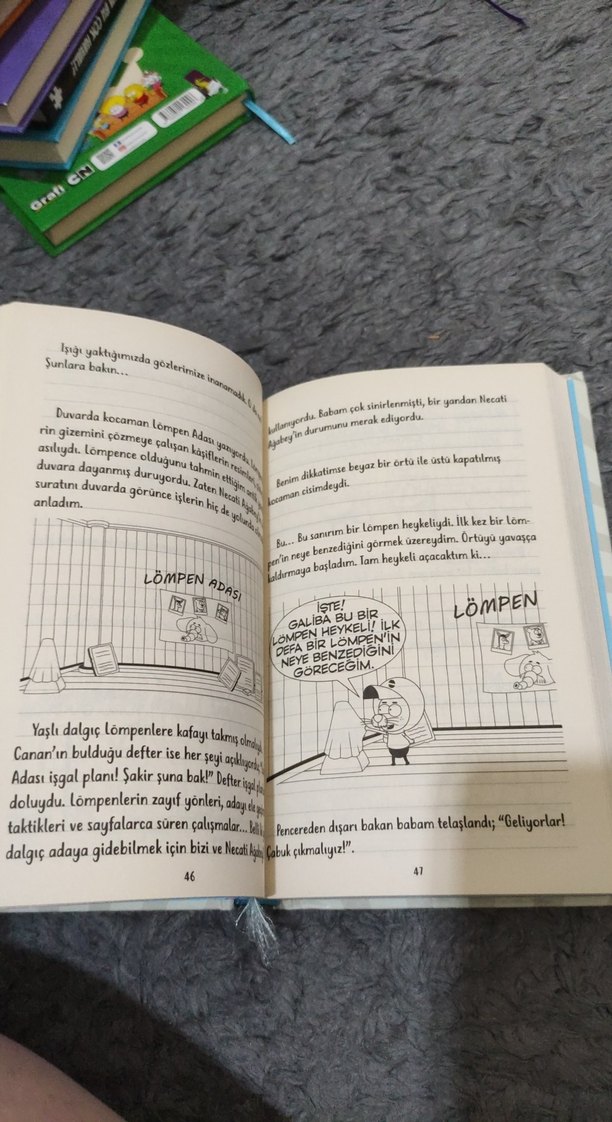 Grafi CN
Işığı yaktığımızda gözlerimize inanamadık.
Şunlara bakın...
Duvarda kocaman Lömpen Adası yazıyordu.
rin gizemini çözmeye çalışan kâşiflerin resimleri
asılıydı. Lömpence olduğunu tahmin ettiğim
duvara dayanmış duruyordu. Zaten Necati
suratını duvarda görünce işlerin hiç de yolunda
anladım.
LÖMPEN ADASI
Yaşlı dalgıç Lömpenlere kafayı takmış
Canan'ın bulduğu defter ise her şeyi açıklıyordu
Adası işgal planı! Şakir şuna bak!" Defter işgal
doluydu. Lömpenlerin zayıf yönleri, adayı ele
taktikleri ve sayfalarca süren çalışmalar...
dalgıç adaya gidebilmek için bizi ve Necati
46
kullanıyordu. Babam çok sinirlenmişti, bir yandan Necati
Ağabey'in durumunu merak ediyordu.
Benim dikkatimse beyaz bir örtü ile üstü kapatılmış
kocaman cisimdeydi.
Bu... Bu sanırım bir lömpen heykeliydi. İlk kez bir löm-
pen'in neye benzediğini görmek üzereydim. Örtüyü yavaşça
kaldırmaya başladım. Tam heykeli açacaktım ki...
İŞTE!
GALİBA BU BİR
LÖMPEN HEYKELİ! İLK
DEFA BİR LÖMPEN'İN
NEYE BENZEDİĞİNİ
GÖRECEĞİM.
LÖMPEN
Pencereden dışarı bakan babam telaşlandı; "Geliyorlar!
Çabuk çıkmalıyız!".
47